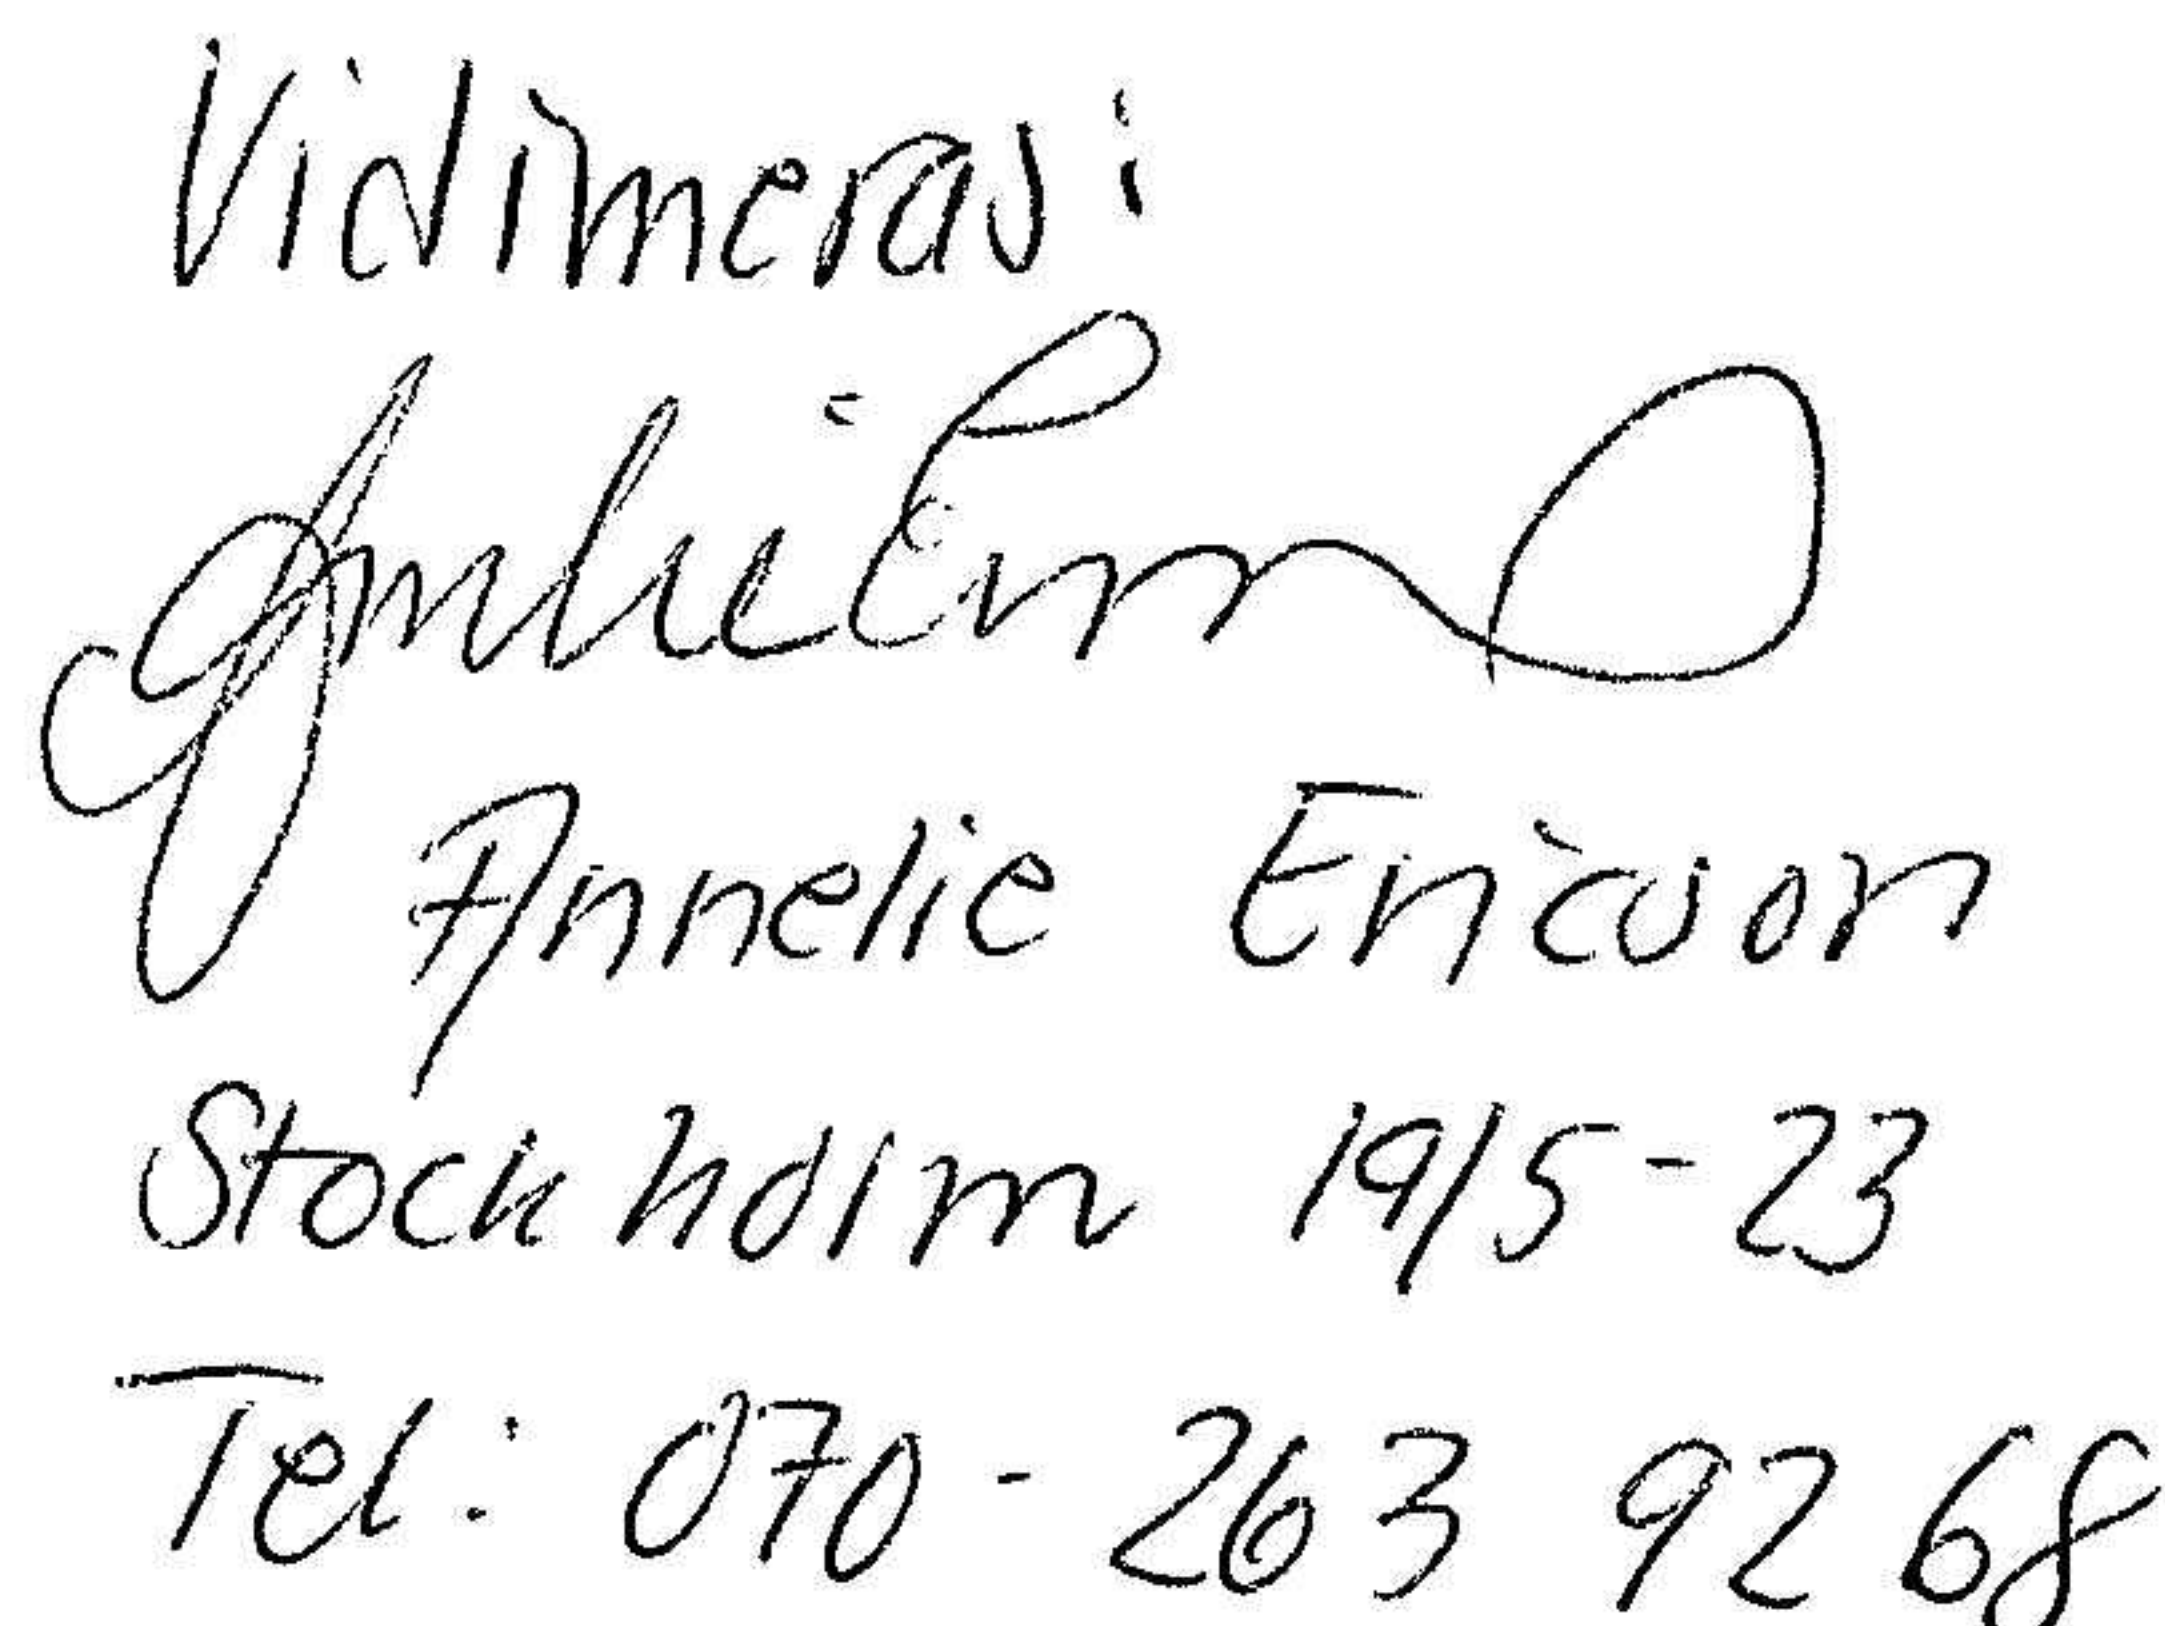 Vidimeras:
Annelie Ericson
Stockholm 19/5-23
Tel: 070-263 92 68